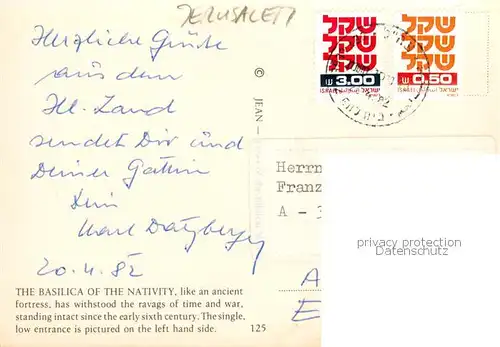 JERUSALEM
Herzliche Grüße
aus dem
Hl. Land
sendet Dir und
Deiner Gattin
Dein
Karl
20.4.82
THE BASILICA OF THE NATIVITY, like an ancient
fortress, has withstood the ravages of time and war,
standing intact since the early sixth century. The single,
low entrance is pictured on the left hand side. 125
© JEAN -
שקל שקל
שקל שקל
שקל שקל
3.00 0.50
ISRAEL ישראל ISRAEL ישראל
Herrn
Franz
A - 3
privacy protection
Datenschutz
A
E